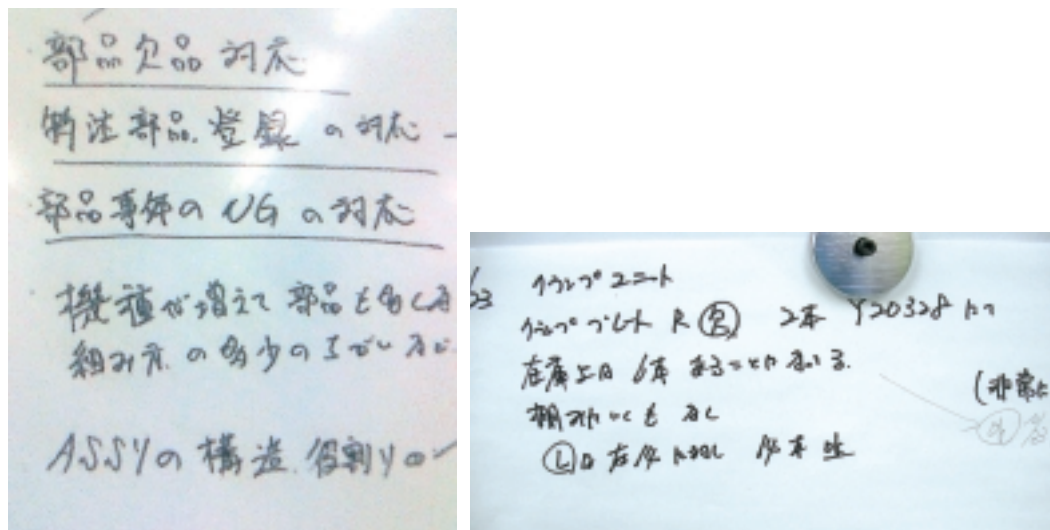 部品欠品 対応
特注部品.登録 の対応
部品事体の NG の対応
機種が増えて 部品も多くな
組み方の多少のちがい
ASSYの構造.役割りの
クランプユニット
クランププレート R 欠 2本 Y20328
在庫上は 6本 あることになっている.
(非常に
棚 もなし
L は